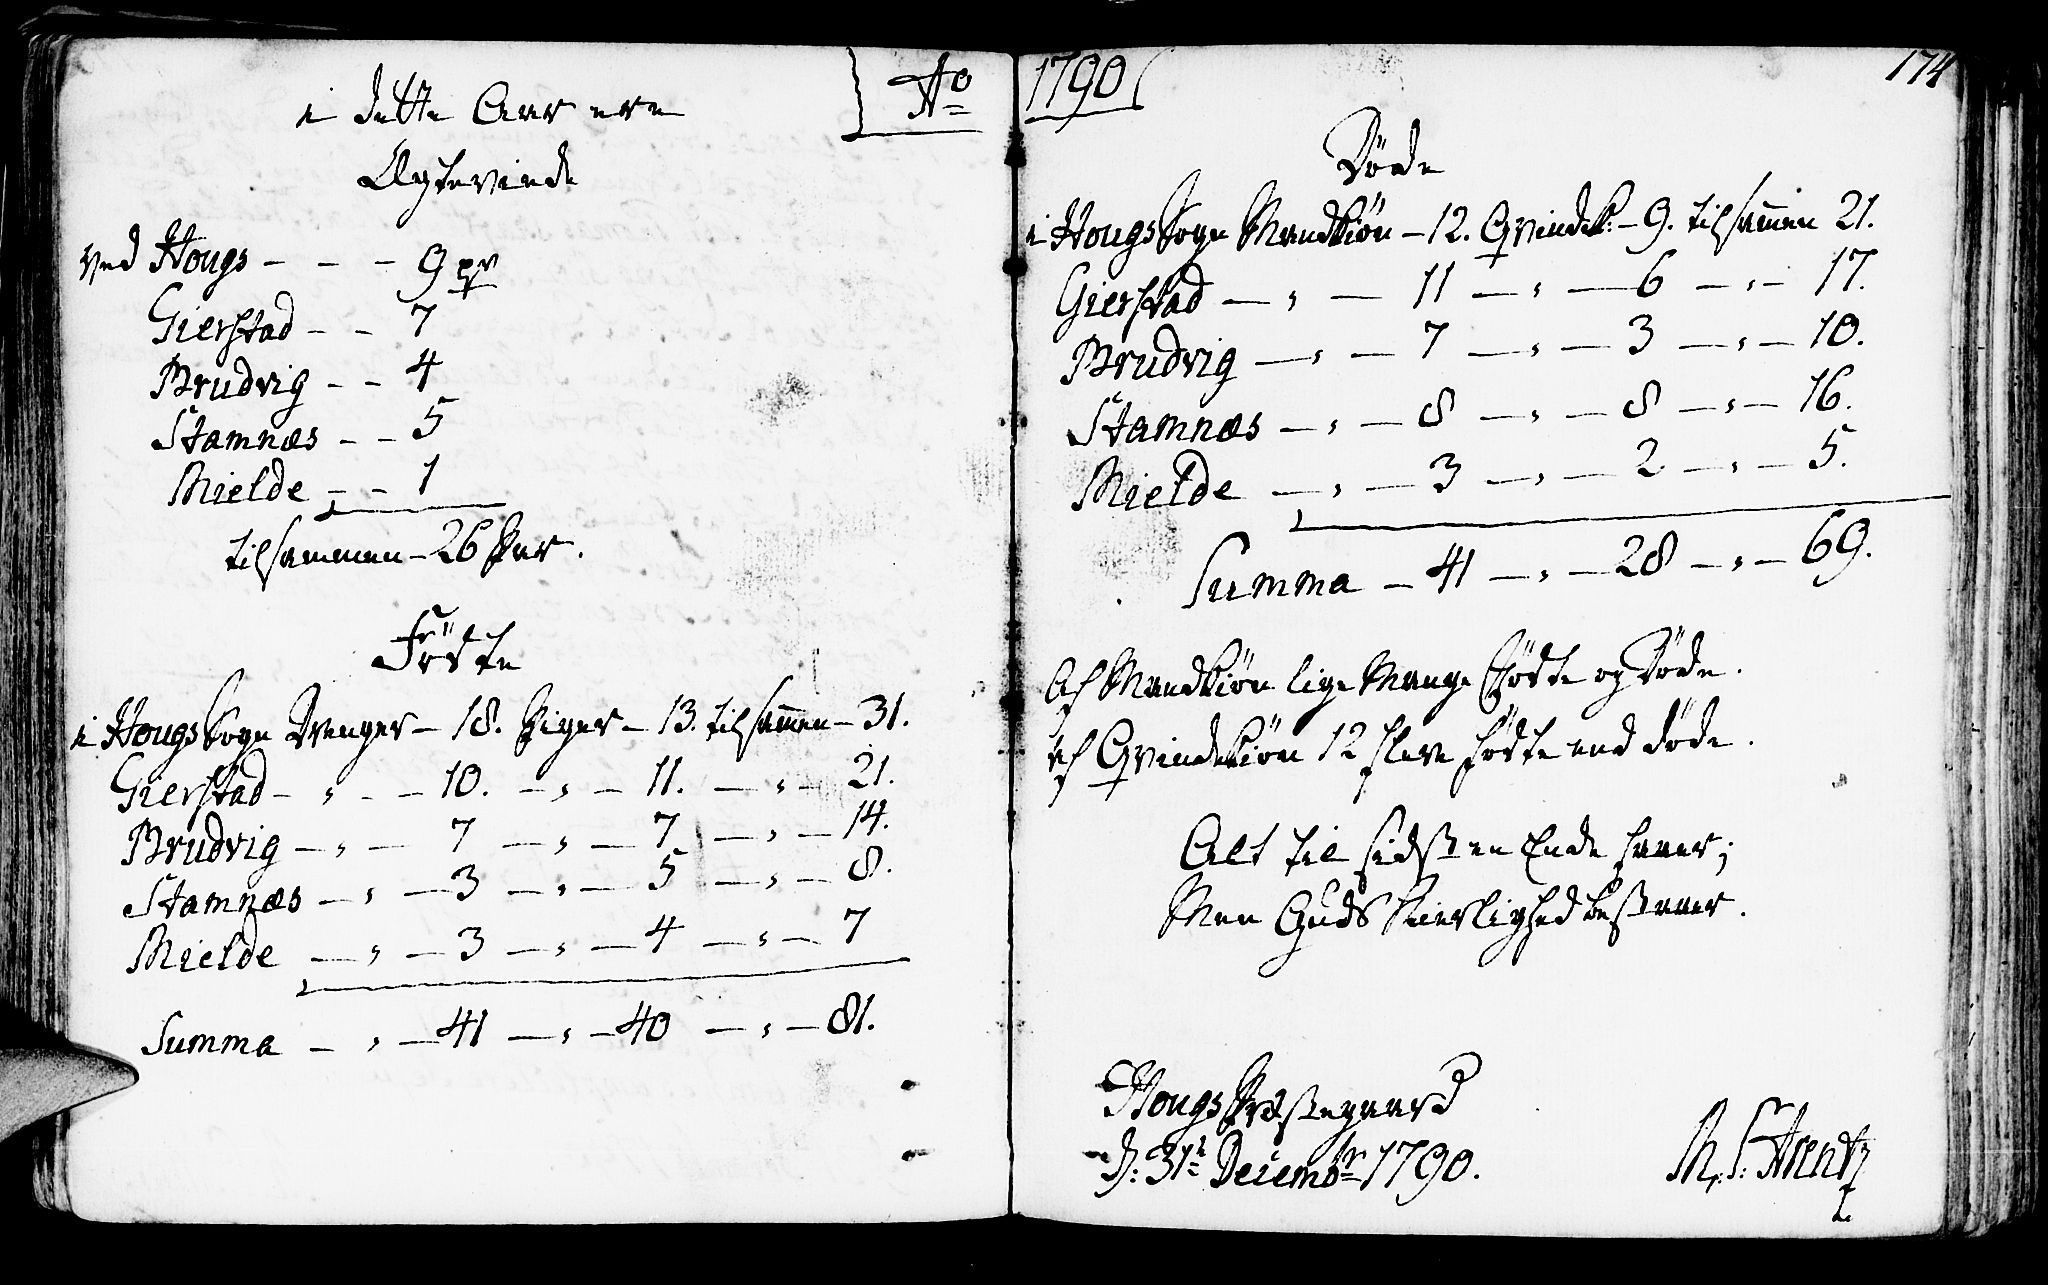 Ao 1790
174
i dette Aar ere
Ægteviede
ved Hougs - - - 9 pr
Gierstad - - 7
Brudvig - - 4
Stamnæs - - 5
Mielde - - 1
tilsammen - 26 Par.
Födte
i Hougs Sogn Drenger - 18. Piger - 13. tilsamen - 31.
Gierstad - „ - - 10. - „ - 11. - „ - 21.
Brudvig - „ - 7 - „ - 7 - „ - 14.
Stamnæs - „ - 3 - „ - 5 - „ - 8.
Mielde - „ - 3 - „ - 4 - „ - 7
Summa - „ - 41 - „ - 40 - „ - 81.
Döde
i Hougs Sogn Mandkiön - 12. Qvindek: - 9. tilsamen 21.
Gierstad - „ - 11 - „ - 6 - „ - 17.
Brudvig - „ - 7 - „ - 3 - „ - 10.
Stamnæs - „ - 8 - „ - 8 - „ - 16.
Mielde - „ - 3 - „ - 2 - „ - 5.
Summa - 41 - „ - 28 - „ - 69.
Af Mandkiön lige Mange Födte og Döde.
af Qvindekiön 12 flere födte end döde.
Alt til sidst en Ende haver;
Men Guds Kierlighed bestaaer.
Hougs Præstegaard
d: 31te Decembr 1790.
M. S. Arentz